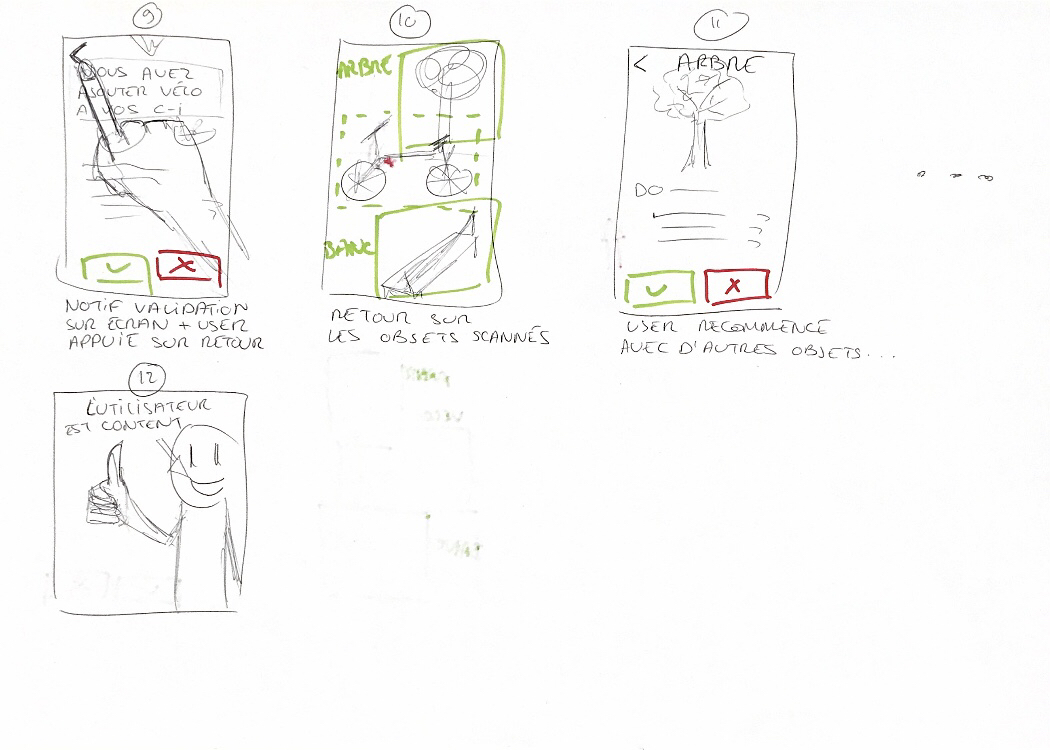 9
VOUS AVEZ
AJOUTER VÉLO
A VOS C-i
NOTIF VALIDATION
SUR ÉCRAN + USER
APPUIE SUR RETOUR
10
ARBRE
BANC
RETOUR SUR
LES OBJETS SCANNÉS
11
< ARBRE
DO
USER RECOMMENCE
AVEC D'AUTRES OBJETS...
12
L'UTILISATEUR
EST CONTENT